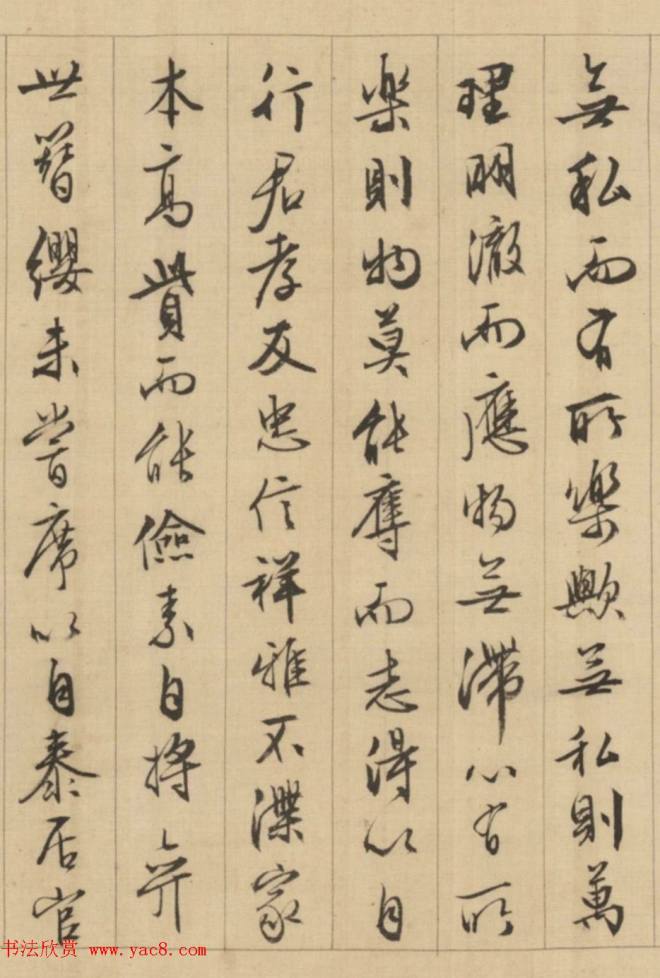 無私而有所樂歟無私則萬
理明澈而應物無滯心有所
樂則物莫能奪而志得以自
行君孝友忠信祥雅不渫家
本高貲而能儉素自將弈
世簪纓未嘗席以自泰居官
书法欣赏 www.yac8.com